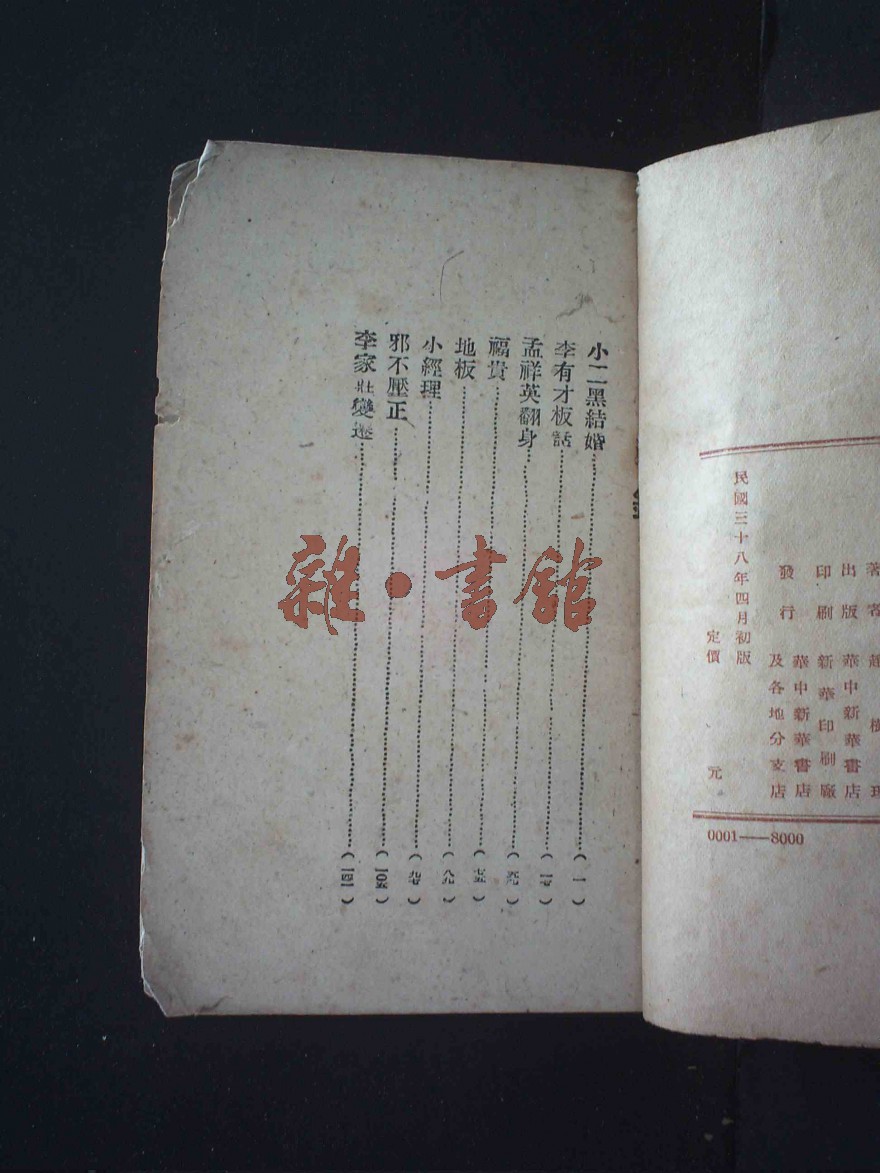 著者 趙樹理
出版 華中新華書店
印刷 新華印刷廠
發行 華中新華書店
及各地分支店
民國三十八年四月初版
定價 元
0001——8000
錄
小二黑結婚……(一)
李有才板話……(一七)
孟祥英翻身
福貴
地板
小經理
邪不壓正……(一〇五)
李家莊變遷……(一四一)
雜·書館